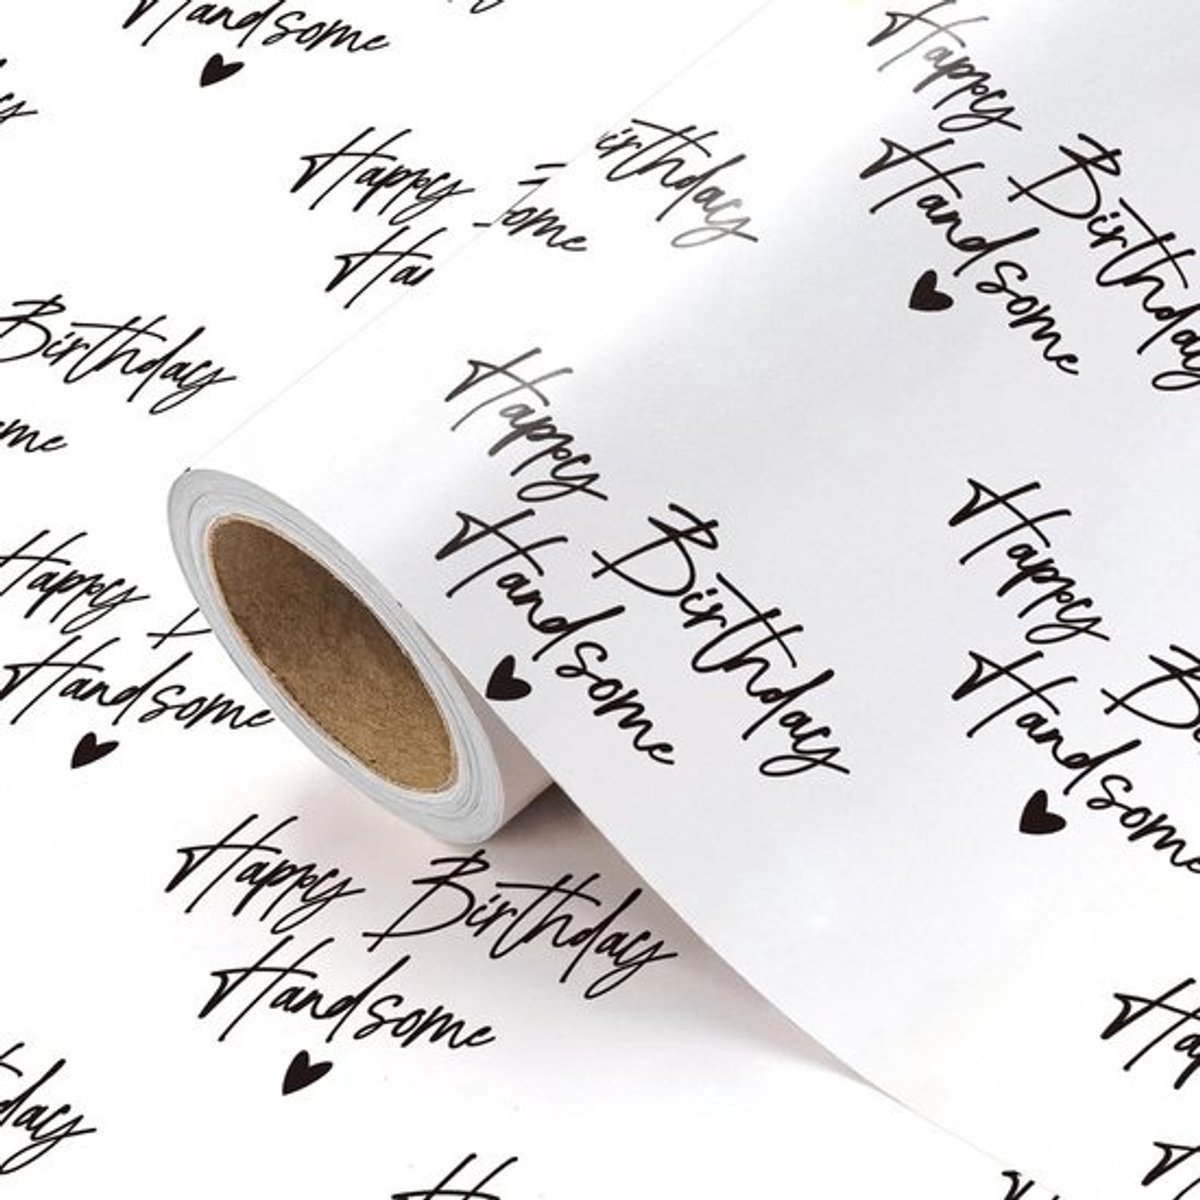 Handsome
Happy
Birthday
Happy
Birthday
Handsome
Handsome
Happy Birthday
Handsome
Birthday
Happy
Birthday
Handsome
Happy
Handsome
Happy
Handsome
Happy Birthday
Handsome